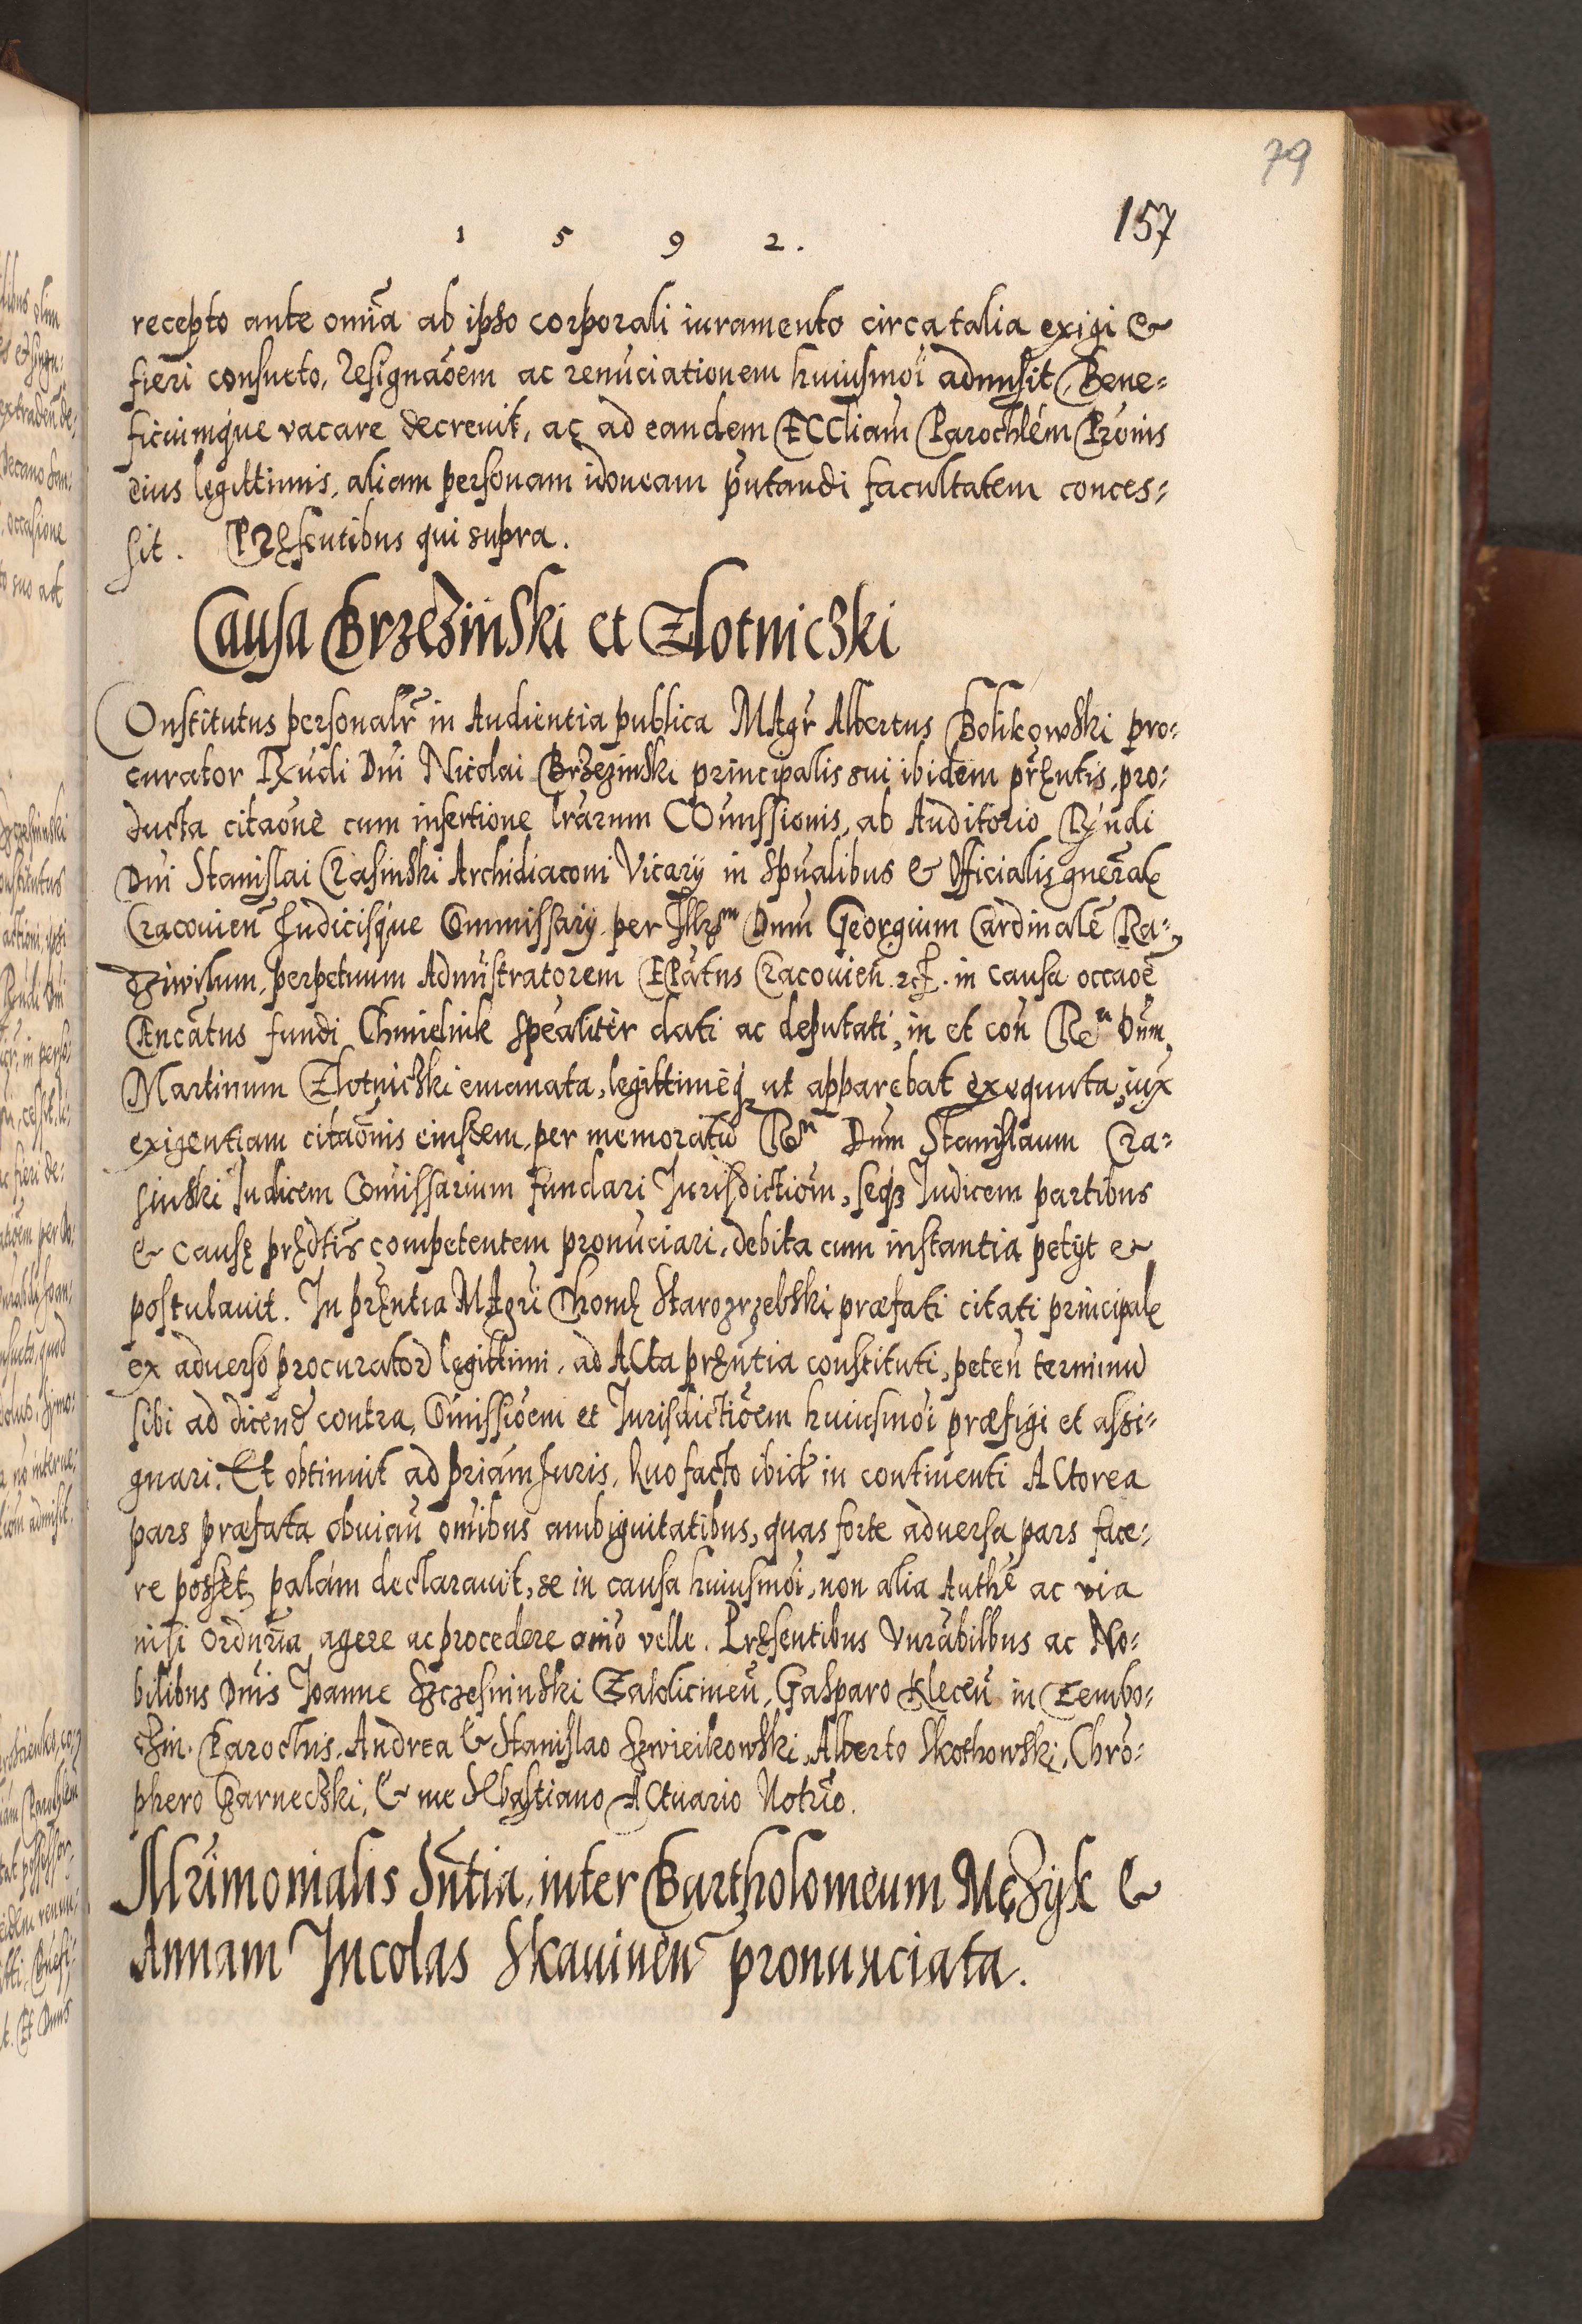 79
157
1 5 9 2.
recepto ante omīa ab ipso corporali iuramento circa talia exigi &
fieri consueto, Resignãoem ac renūciationem huiusmōi admisit, Bene=
ficiumque vacare decrevit, ac ad eandem ECCliam Parochlem Prōnis
eius legittimis, aliam personam idoneam pñtandi facultatem conces=
sit. Pręsentibus qui supra.
Causa Brzezinski et Zlotniczki
COnstitutus personalr̃ in Audientia publica MAgr̃ Albertus Bolikowski pro=
curator Rx̃ndi Dñi Nicolai Brzezinski principalis sui ibidem pręntis, pro=
ducta citaõne cum insertione lrãrum COm̃issionis, ab Auditorio Rx̃ndi
Dñi Stanislai Crasinski Archidiaconi Vicarÿ in Spũalibus & Officialis gñeral
Cracouieñ Judicisque Commissarÿ per Illrm̃ Dnm̃ Georgium Cardinalẽ Ra=
dziwilum, perpetuum Adm̃istratorem EPãtus Cracouieñ. in causa occaõe
Cencãtus fundi Chmielnik spẽaliter dati ac deputati, in et con̄ Rm̃ Dnm̃
Martinum Zlotniczki emanata, legittimeq̃ ut apparebat exequuta, iux̃
exigentiam citaõnis eiusdem, per memoratũ Rm̃ Dnm̃ Stanislaum Cra=
sinski Judicem Com̃issarium fundari Jurisdictiõm, seq̃ Judicem partibus
& causę prędtis competentem pronũciari, debita cum instantia petÿt &
postulauit. In pręntia MAgri Thomę Starozrzebski præfati citati principal
ex aduerso procurator legittimi, ad ACta pręntia constituti, peteñ terminũ
sibi ad dicend contra, Com̃issiõem et Jurisdictiõem huiusmõi præfigi et assi=
gnari. Et obtinuit ad priãm Juris. Quo facto ibid in continenti ACtorea
pars præfata obuiañ om̃ibus ambiguitatibus, quas forte aduersa pars face=
re posset, palàm declarauit, se in causa huiusmõi, non alia Authẽ ac via
nisi ordnr̃ia agere ac procedere om̃o velle. Pręsentibus Vnrãbilbus ac No=
bilibus Dñis Joanne Szczesninski Zaklicineñ, Gasparo Kleceñ in Zembo=
czin. Parochis. Andrea & Stanislao Szwieikowski, Alberto Skothowski, Chrõ=
phero Czarneczki, & me SEbastiano ACtuario Notrio.
Mrimonialis Sñtia, inter Bartholomeum Męzyk &
Annam Incolas Skauineñ pronunciata.